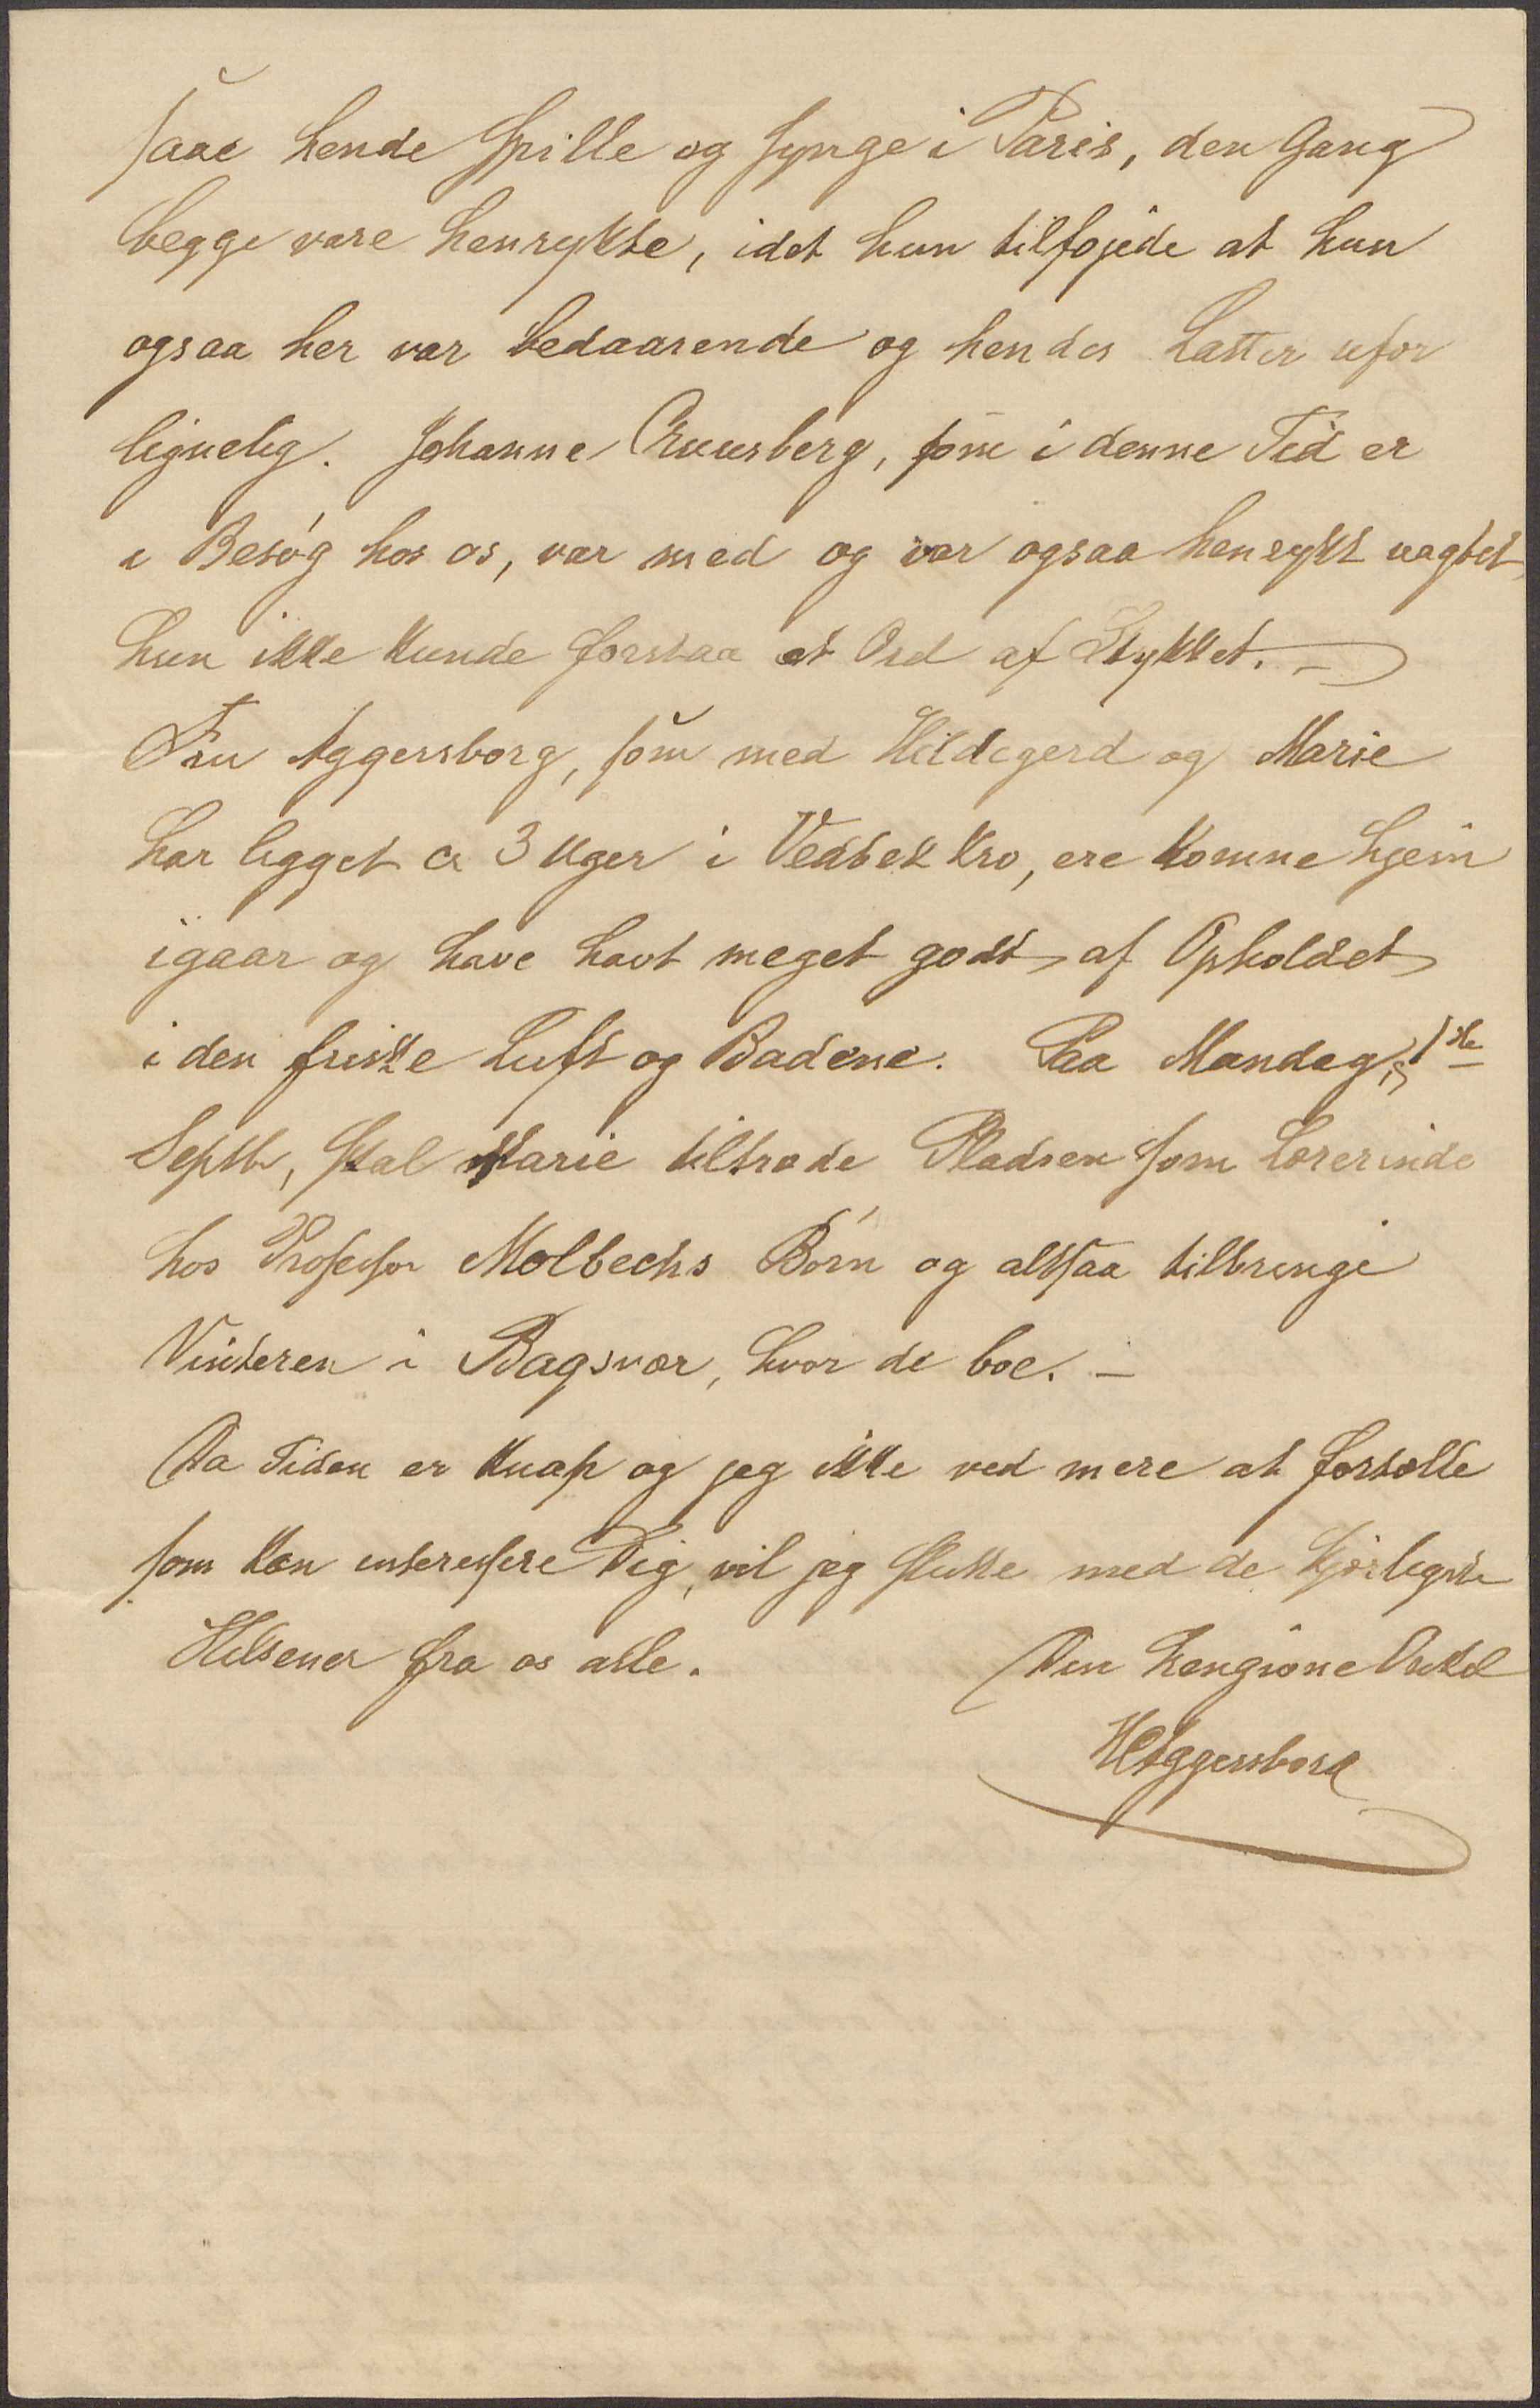 saae hende spille og synge i Paris, den Gang
begge vare henrykte, idet hun tilføjede at hun
ogsaa her var bedaarende og hendes Latter ufor
lignelig. Johanne Cruusberg, som i denne Tid er
i Besøg hos os, var med og var ogsaa henrykt uagtet
hun ikke kunde forstaa et Ord af Stykket. –
Fru Aggersborg, som med Hildegerd og Marie
har ligget ca 3 Uger i Vedbek Kro, ere komne hjem
igaar og have havt meget godt af Opholdet
i den friske Luft og Badene. Paa Mandag, 1ste
Septb, skal Marie tiltræde Pladsen som Lærerinde
hos Professor Molbechs Børn og altsaa tilbringe
Vinteren i Bagsvær, hvor de boe. –
Da Tiden er knap og jeg ikke ved mere at fortælle
som kan interessere Dig, vil jeg slutte med de kjærligste
Hilsener fra os alle. Din hengivne Onkel
HAggersborg